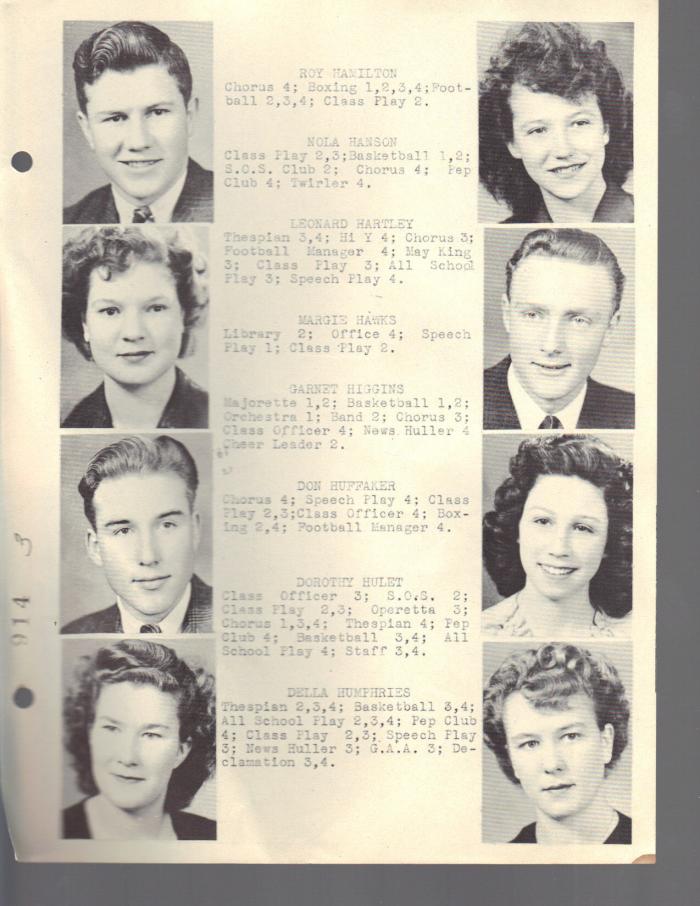 ROY HAMILTON
Chorus 4; Boxing 1,2,3,4;Foot-
ball 2,3,4; Class Play 2.
NOLA HANSON
Class Play 2,3;Basketball 1,2;
S.O.S. Club 2; Chorus 4; Pep
Club 4; Twirler 4.
LEONARD HARTLEY
Thespian 3,4; Hi Y 4; Chorus 3;
Football Manager 4; May King
3; Class Play 3; All School
Play 3; Speech Play 4.
MARGIE HAWKS
Library 2; Office 4; Speech
Play 1; Class Play 2.
GARNET HIGGINS
Majorette 1,2; Basketball 1,2;
Orchestra 1; Band 2; Chorus 3;
Class Officer 4; News Huller 4
Cheer Leader 2.
DON HUFFAKER
Chorus 4; Speech Play 4; Class
Play 2,3;Class Officer 4; Box-
ing 2,4; Football Manager 4.
DOROTHY HULET
Class Officer 3; S.O.S. 2;
Class Play 2,3; Operetta 3;
Chorus 1,3,4; Thespian 4; Pep
Club 4; Basketball 3,4; All
School Play 4; Staff 3,4.
DELLA HUMPHRIES
Thespian 2,3,4; Basketball 3,4;
All School Play 2,3,4; Pep Club
4; Class Play 2,3; Speech Play
3; News Huller 3; G.A.A. 3; De-
clamation 3,4.
914